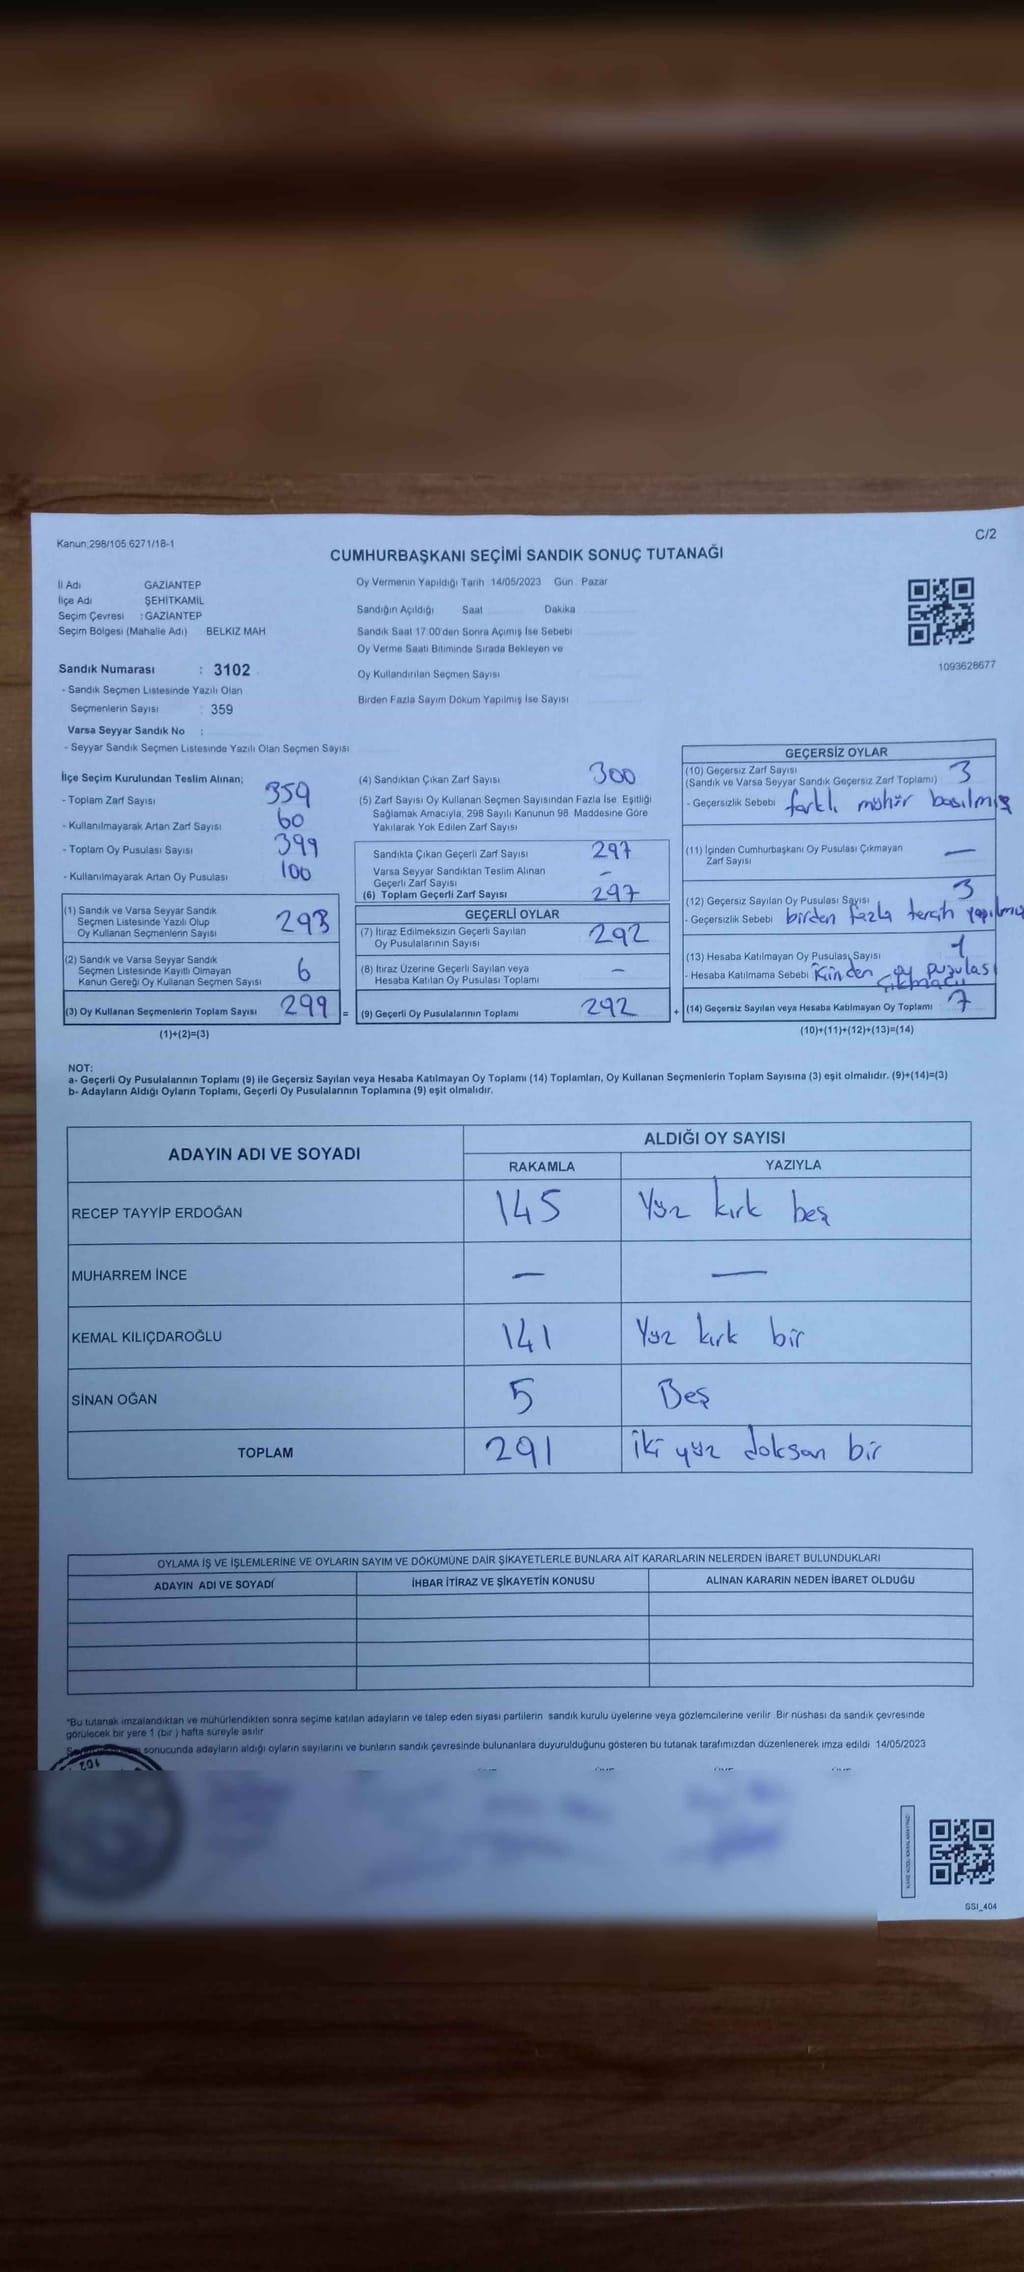 Kanun:298/105.6271/18-1
C/2
CUMHURBAŞKANI SEÇİMİ SANDIK SONUÇ TUTANAĞI
İl Adı GAZİANTEP
İlçe Adı ŞEHİTKAMİL
Seçim Çevresi : GAZİANTEP
Seçim Bölgesi (Mahalle Adı) BELKIZ MAH
Sandık Numarası : 3102
- Sandık Seçmen Listesinde Yazılı Olan
Seçmenlerin Sayısı : 359
Varsa Seyyar Sandık No :
- Seyyar Sandık Seçmen Listesinde Yazılı Olan Seçmen Sayısı
Oy Vermenin Yapıldığı Tarih 14/05/2023 Gün Pazar
Sandığın Açıldığı Saat Dakika
Sandık Saat 17:00'den Sonra Açımış İse Sebebi
Oy Verme Saati Bitiminde Sırada Bekleyen ve
Oy Kullandırılan Seçmen Sayısı
Birden Fazla Sayım Döküm Yapılmış İse Sayısı
1093628677
İlçe Seçim Kurulundan Teslim Alınan;
- Toplam Zarf Sayısı 359
- Kullanılmayarak Artan Zarf Sayısı 60
- Toplam Oy Pusulası Sayısı 399
- Kullanılmayarak Artan Oy Pusulası 100
(1) Sandık ve Varsa Seyyar Sandık
Seçmen Listesinde Yazılı Olup
Oy Kullanan Seçmenlerin Sayısı 293
(2) Sandık ve Varsa Seyyar Sandık
Seçmen Listesinde Kayıtlı Olmayan
Kanun Gereği Oy Kullanan Seçmen Sayısı 6
(3) Oy Kullanan Seçmenlerin Toplam Sayısı 299 =
(1)+(2)=(3)
(4) Sandıktan Çıkan Zarf Sayısı 300
(5) Zarf Sayısı Oy Kullanan Seçmen Sayısından Fazla İse Eşitliği
Sağlamak Amacıyla, 298 Sayılı Kanunun 98. Maddesine Göre
Yakılarak Yok Edilen Zarf Sayısı
Sandıkta Çıkan Geçerli Zarf Sayısı 297
Varsa Seyyar Sandıktan Teslim Alınan
Geçerli Zarf Sayısı -
(6) Toplam Geçerli Zarf Sayısı 297
GEÇERLİ OYLAR
(7) İtiraz Edilmeksizin Geçerli Sayılan
Oy Pusulalarının Sayısı 292
(8) İtiraz Üzerine Geçerli Sayılan veya
Hesaba Katılan Oy Pusulası Toplamı -
(9) Geçerli Oy Pusulalarının Toplamı 292 +
GEÇERSİZ OYLAR
(10) Geçersiz Zarf Sayısı 3
(Sandık ve Varsa Seyyar Sandık Geçersiz Zarf Toplamı)
- Geçersizlik Sebebi farklı mühür basılmış
(11) İçinden Cumhurbaşkanı Oy Pusulası Çıkmayan
Zarf Sayısı —
(12) Geçersiz Sayılan Oy Pusulası Sayısı 3
- Geçersizlik Sebebi birden fazla tercih yapılmış
(13) Hesaba Katılmayan Oy Pusulası Sayısı 1
- Hesaba Katılmama Sebebi İçinden oy pusulası
(14) Geçersiz Sayılan veya Hesaba Katılmayan Oy Toplamı 7
(10)+(11)+(12)+(13)=(14)
NOT:
a- Geçerli Oy Pusulalarının Toplamı (9) ile Geçersiz Sayılan veya Hesaba Katılmayan Oy Toplamı (14) Toplamları, Oy Kullanan Seçmenlerin Toplam Sayısına (3) eşit olmalıdır. (9)+(14)=(3)
b- Adayların Aldığı Oyların Toplamı, Geçerli Oy Pusulalarının Toplamına (9) eşit olmalıdır.
ADAYIN ADI VE SOYADI ALDIĞI OY SAYISI
RAKAMLA YAZIYLA
RECEP TAYYİP ERDOĞAN 145 Yüz kırk beş
MUHARREM İNCE — —
KEMAL KILIÇDAROĞLU 141 Yüz kırk bir
SİNAN OĞAN 5 Beş
TOPLAM 291 iki yüz doksan bir
OYLAMA İŞ VE İŞLEMLERİNE VE OYLARIN SAYIM VE DÖKÜMÜNE DAİR ŞİKAYETLERLE BUNLARA AİT KARARLARIN NELERDEN İBARET BULUNDUKLARI
ADAYIN ADI VE SOYADI İHBAR İTİRAZ VE ŞİKAYETİN KONUSU ALINAN KARARIN NEDEN İBARET OLDUĞU
*Bu tutanak imzalandıktan ve mühürlendikten sonra seçime katılan adayların ve talep eden siyasi partilerin sandık kurulu üyelerine veya gözlemcilerine verilir. Bir nüshası da sandık çevresinde
görülecek bir yere 1 (bir ) hafta süreyle asılır
sonucunda adayların aldığı oyların sayılarını ve bunların sandık çevresinde bulunanlara duyurulduğunu gösteren bu tutanak tarafımızdan düzenlenerek imza edildi 14/05/2023
SSI_404